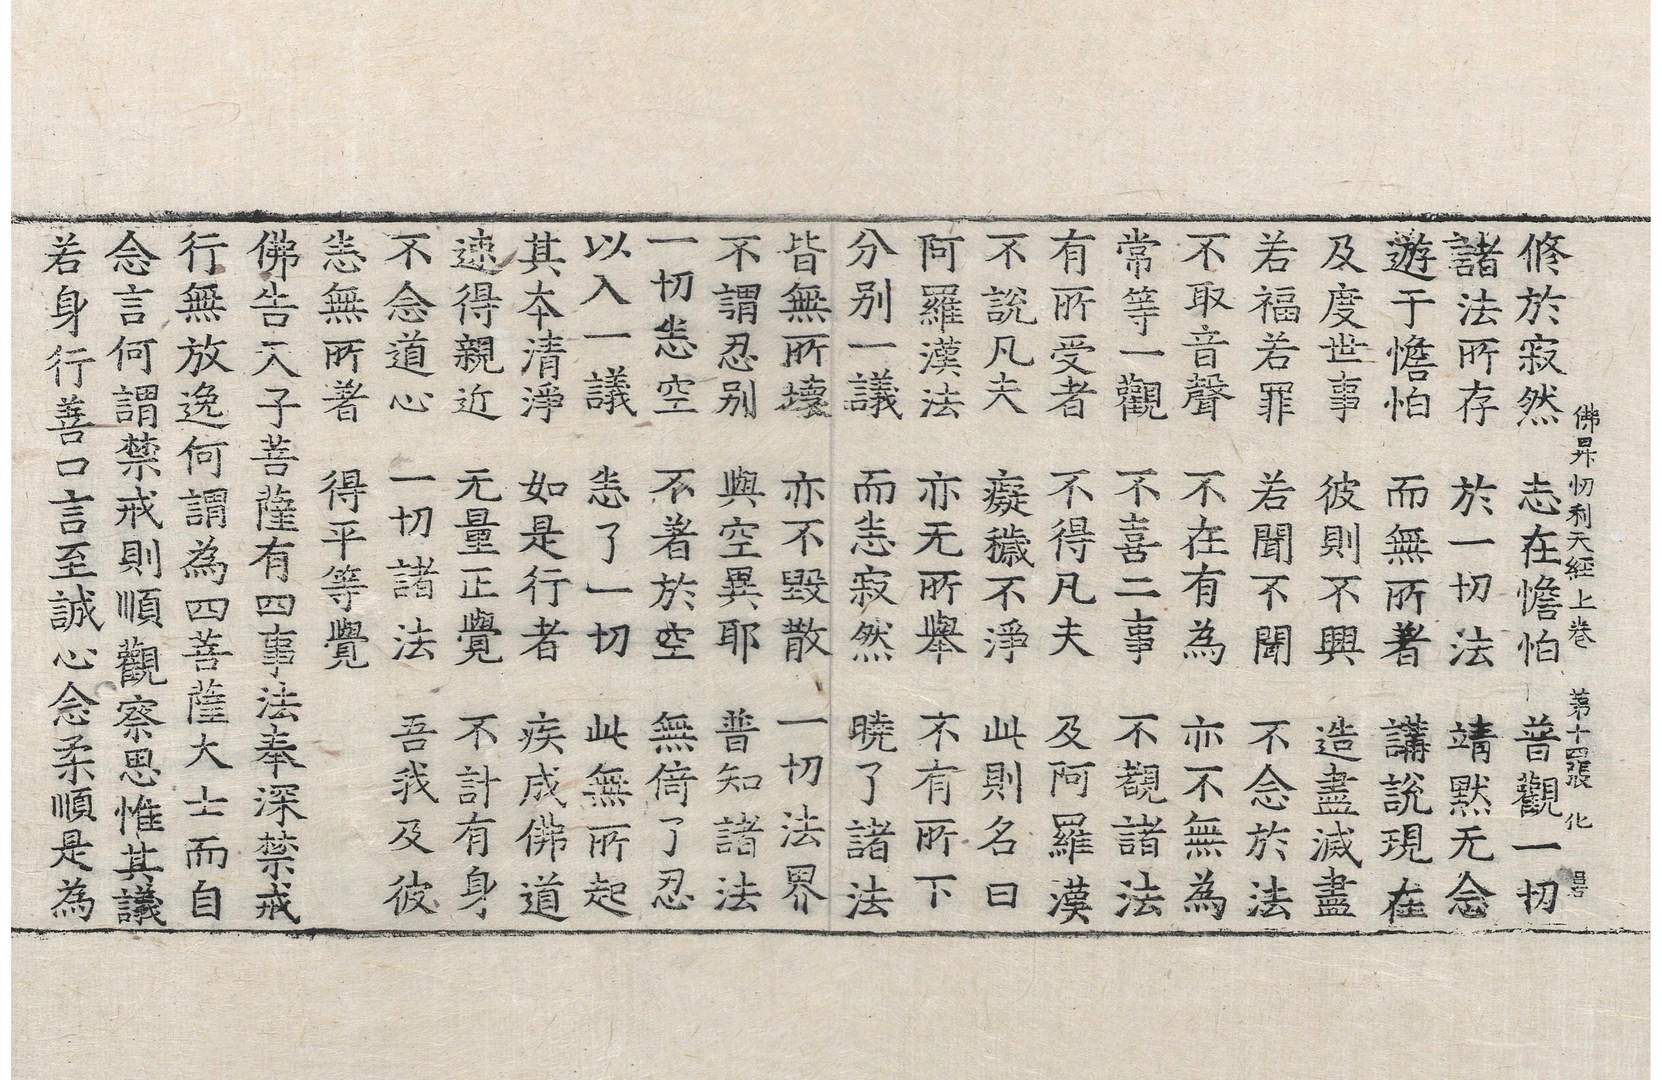 佛昇忉利天經上卷 第十四張 化
修於寂然 志在憺怕 普觀一切
諸法所存 於一切法 靖默无念
遊于憺怕 而無所著 講說現在
及度世事 彼則不興 造盡滅盡
若福若罪 若聞不聞 不念於法
不取音聲 不在有為 亦不無為
常等一觀 不喜二事 不觀諸法
有所受者 不得凡夫 及阿羅漢
不說凡夫 癡穢不淨 此則名曰
阿羅漢法 亦无所舉 不有所下
分别一議 而悉寂然 曉了諸法
皆無所壞 亦不毀散 一切法界
不謂忍别 與空異耶 普知諸法
一切悉空 不著於空 無倚了忍
以入一議 悉了一切 此無所起
其本清淨 如是行者 疾成佛道
速得親近 无量正覺 不計有身
不念道心 一切諸法 吾我及彼
悉無所著 得平等覺
佛告天子菩薩有四事法奉深禁戒
行無放逸何謂為四菩薩大士而自
念言何謂禁戒則順觀察思惟其議
若身行善口言至誠心念柔順是為